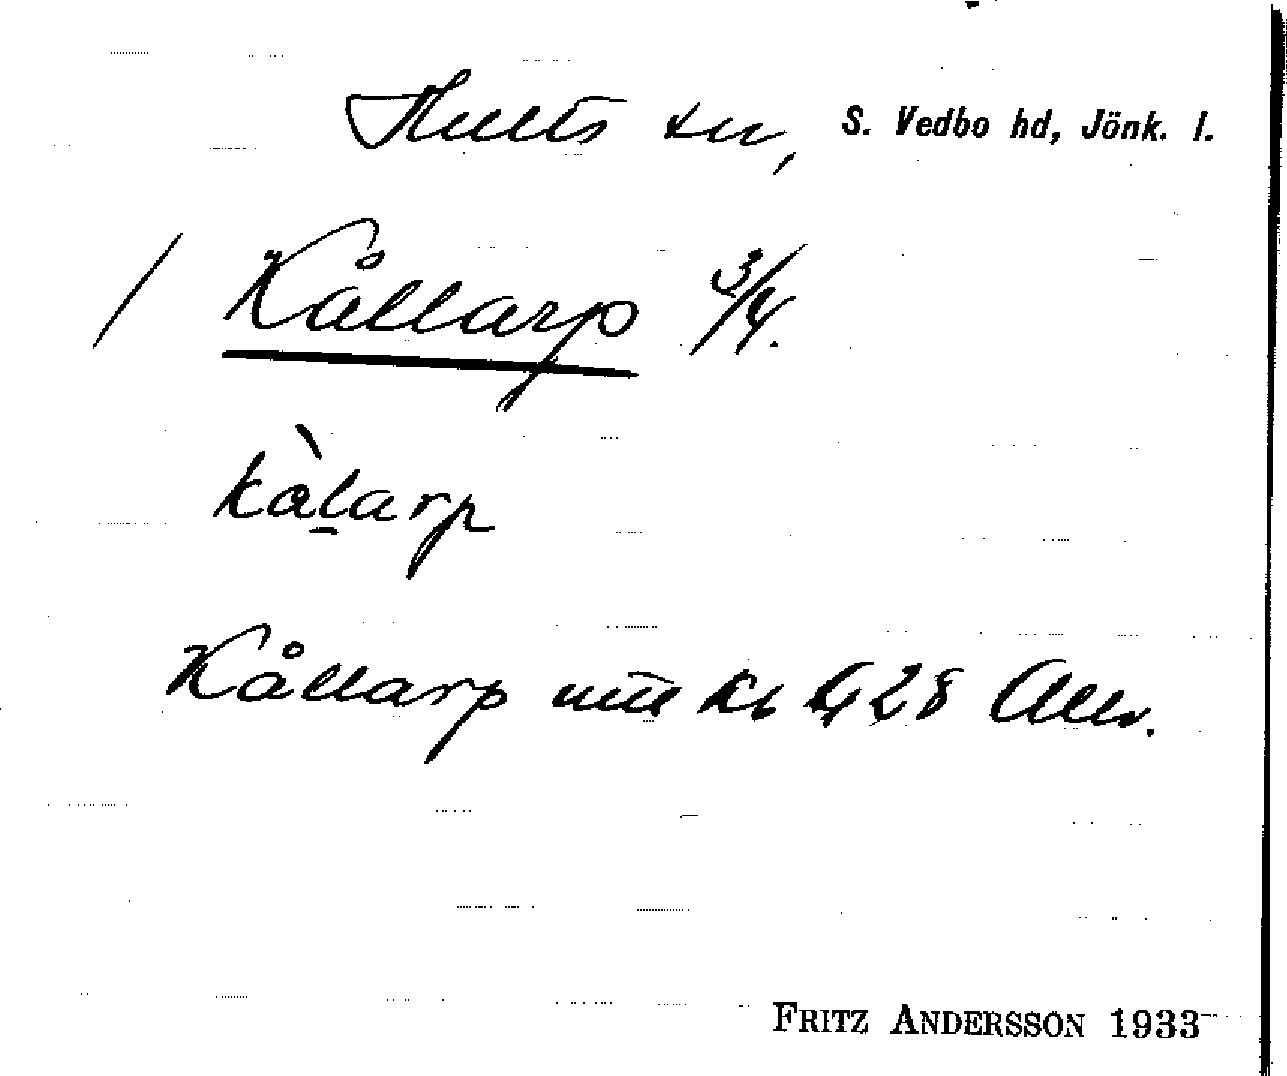 Hults sn, S. Vedbo hd, Jönk. l.
/ Kållarp 3/4.
kàlarp
Kållarp mtl Kb 428 Allr.
FRITZ ANDERSSON 1933